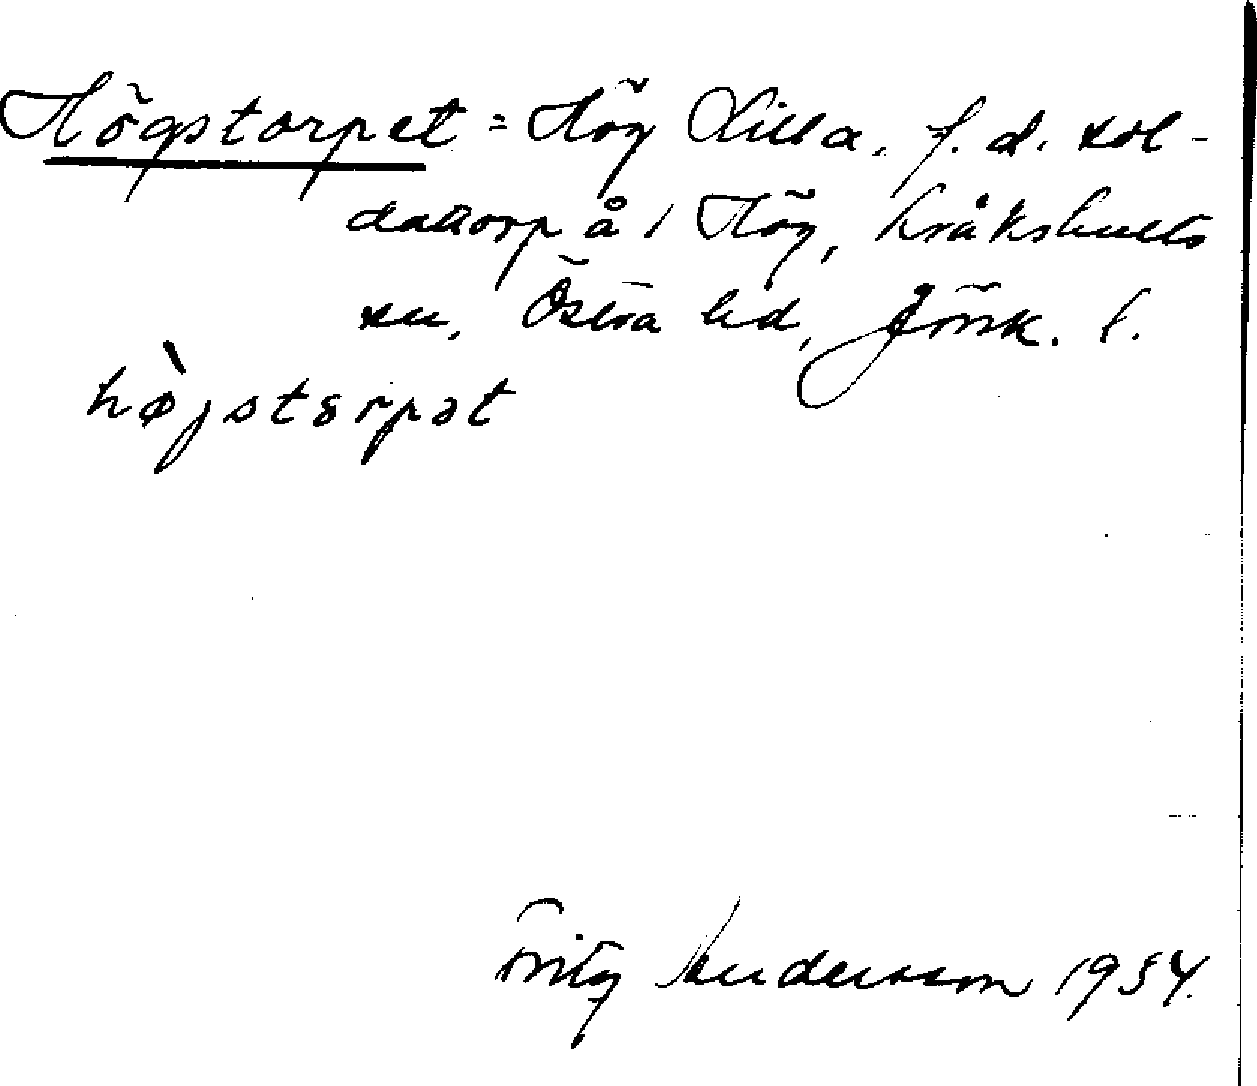 Högstorpet = Hög Lilla, f. d. sol-
dattorp å 1 Hög, Kråkshults
sn, Östra hd, Jönk. l.
hø̀jstɛrpət
Fritz Andersson 1954.